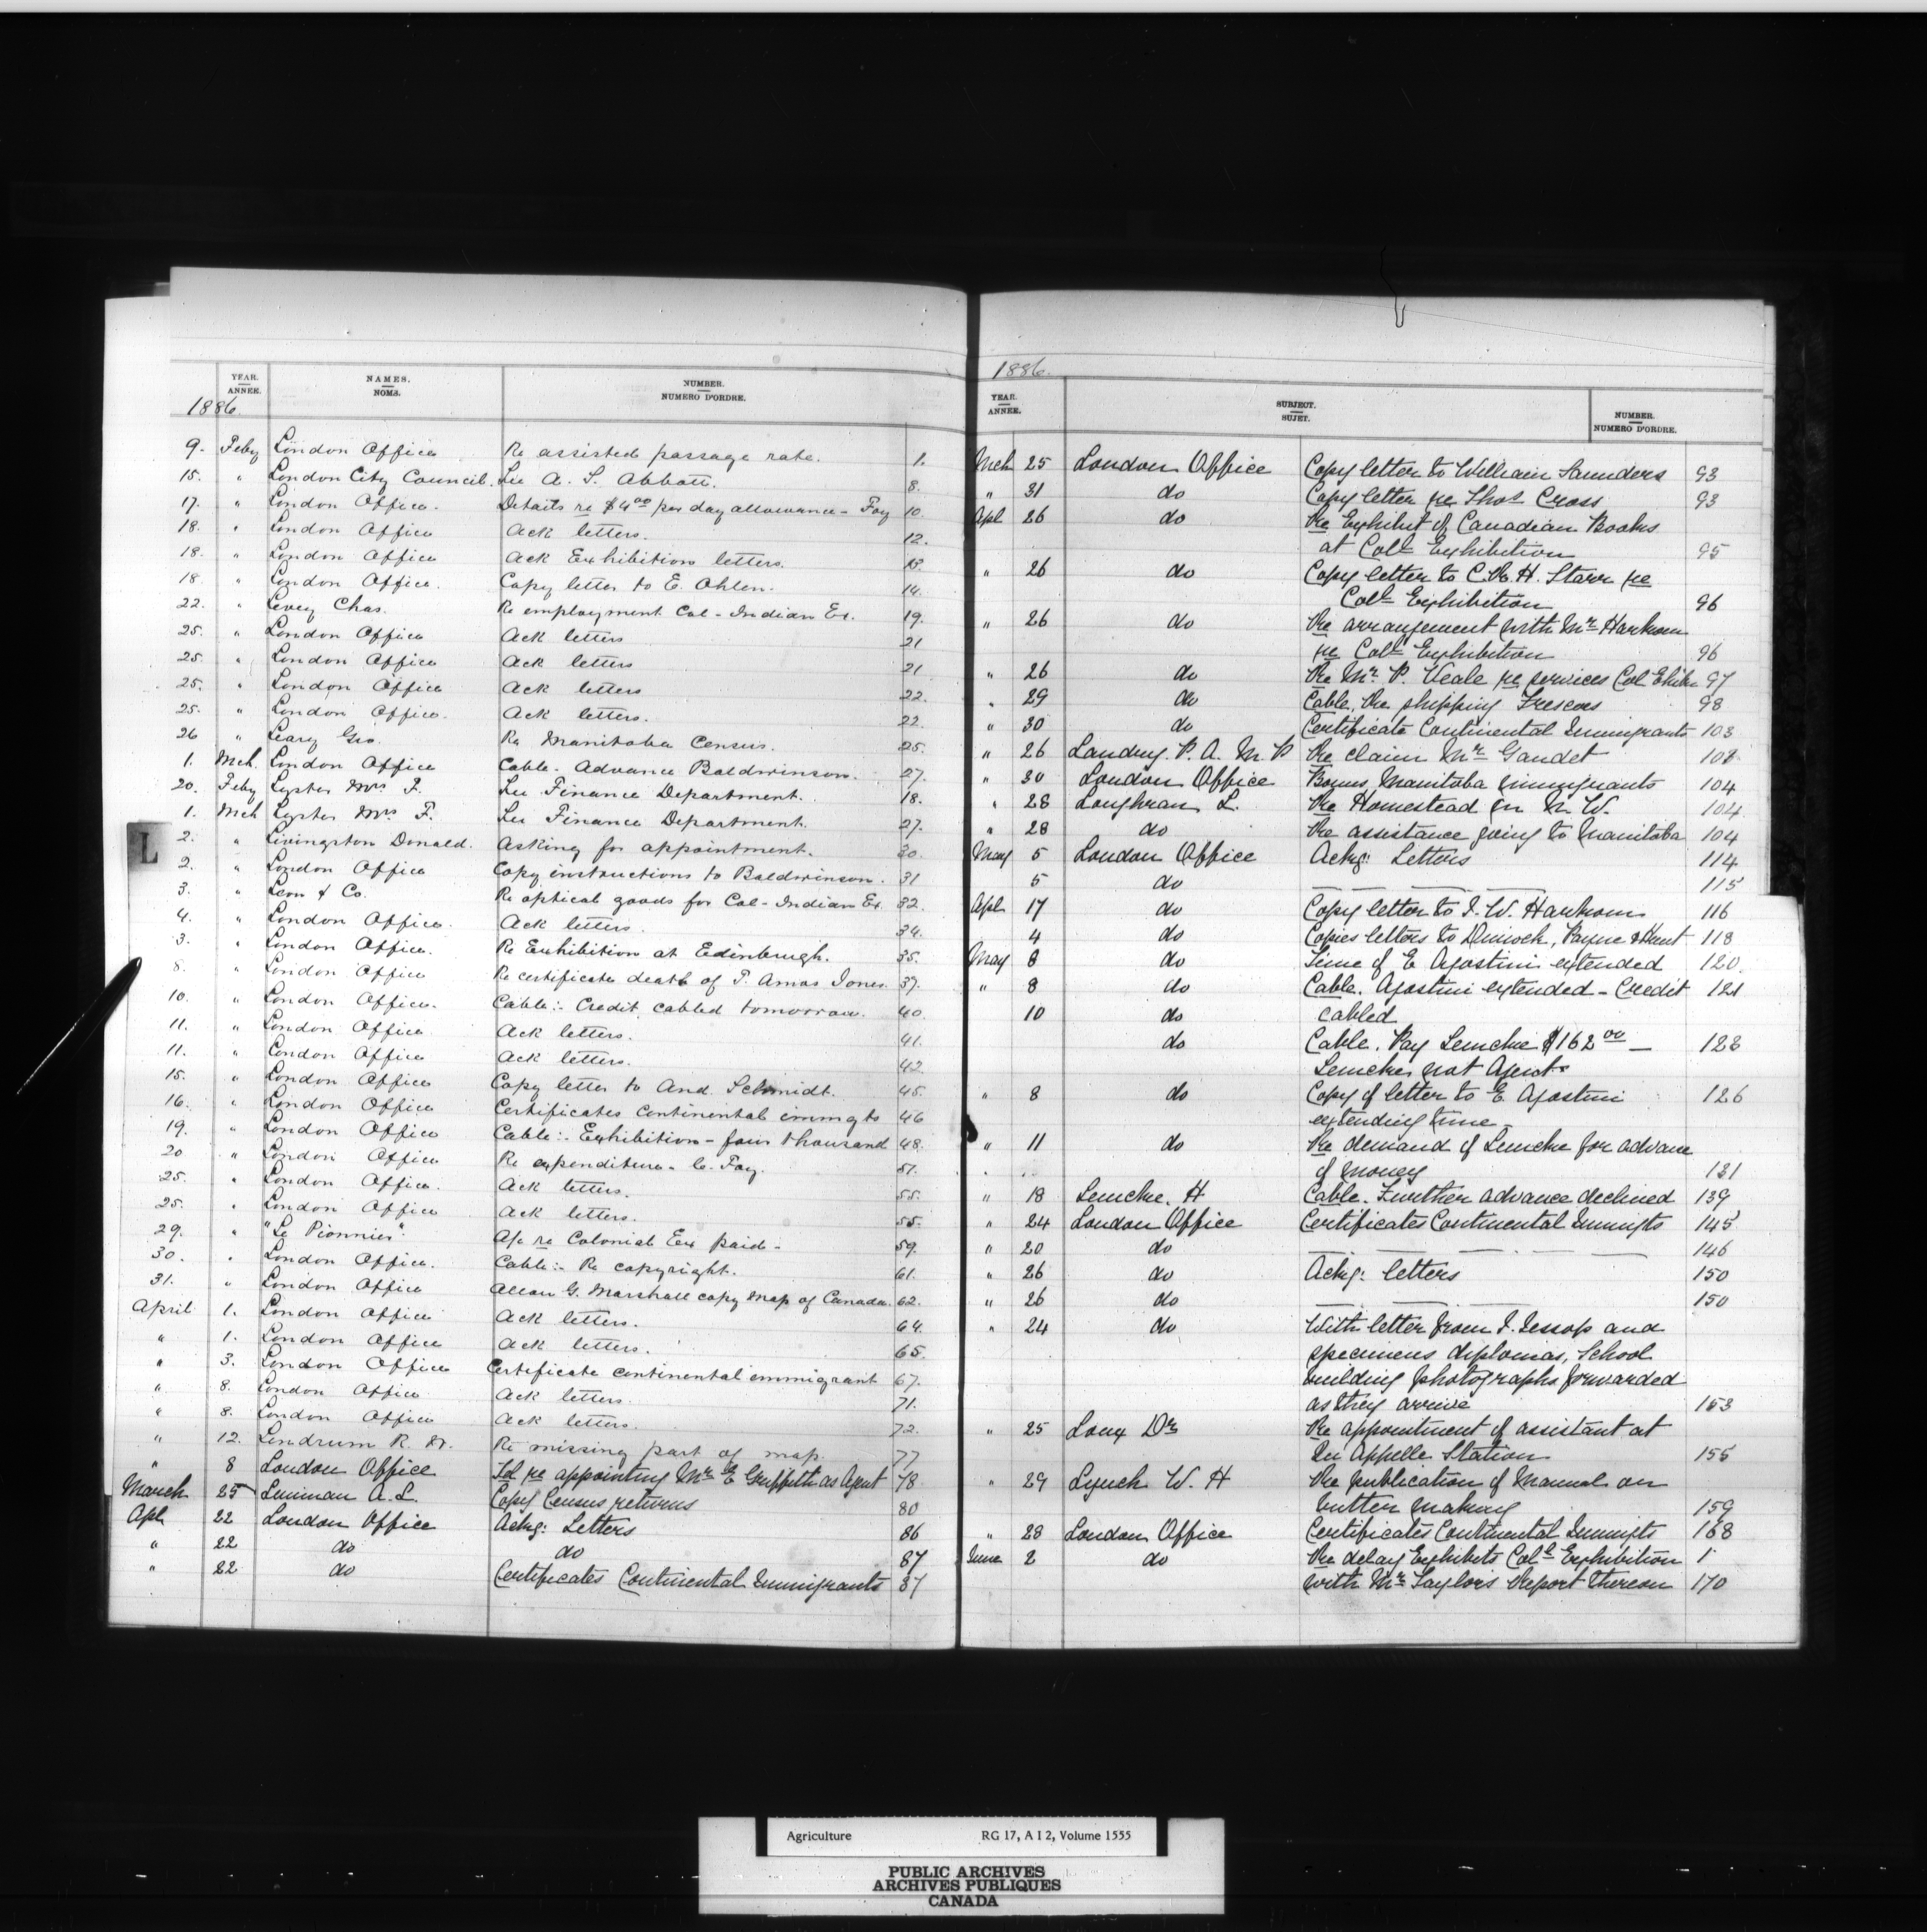 1886.
YEAR. ANNEE. NAMES. NOMS. NUMBER. NUMERO D'ORDRE.
9. Feby London Office Re assisted passage rate. 1.
15. " London City Council. Lee A. S. Abbott. 8.
17. " London Office. Details re $4.00 per day allowance - Foy 10.
18. " London Office Ack letters. 12.
18. " London Office Ack Exhibition letters. 13.
18. " London Office. Copy letter to E. Ohlen. 14.
22. " Levey Chas. Re employment Col-Indian Ex. 19.
25. " London Office Ack letters 21
25. " London Office Ack letters 21
25. " London Office Ack letters 22.
25. " London Office. Ack letters. 22.
26 " Leary Geo. Re Manitoba Census. 25.
1. Mch. London Office Cable- Advance Baldwinson. 27.
20. Feby Lyster Mrs F. Lee Finance Department. 18.
1. Mch Lyster Mrs F. Lee Finance Department. 27.
2. " Livingston Donald. Asking for appointment. 30.
2. " London Office Copy instructions to Baldwinson. 31
3. " Leon & Co. Re optical goods for Col-Indian Ex. 32.
4. " London Office. Ack letters. 34.
3. " London Office. Re Exhibition at Edinbrugh. 35.
8. " London Office Re certificate death of T. Amos Jones. 37.
10. " London Office. Cable:- Credit cabled tomorrow. 40.
11. " London Office Ack letters. 41.
11. " London Office Ack letters. 42.
15. " London Office Copy letter to And. Schmidt. 45.
16. " London Office Certificates continental immgts 46
19. " London Office Cable:- Exhibition - four thousand 48.
20 " London Office Re expenditure - C. Foy. 51.
25. " London Office. Ack letters. 55.
25. " London Office Ack letters. 55.
29. " "Le Pionnier". A/c re Colonial Ex paid - 59.
30. " London Office. Cable:- Re copyright. 61.
31. " London Office Allan G. Marshall copy map of Canada. 62.
April 1. London Office Ack letters. 64.
" 1. London Office Ack letters. 65.
" 3. London Office Certificate continental immigrant 67.
" 8. London Office Ack letters. 71.
" 8. London Office Ack letters. 72.
" 12. Lendrum R. W. Re missing part of map. 77
" 8 London Office re appointing Mr E Griffith as Agent 78
March 25 A. L. Copy Census returns 80
Apl 22 London Office Ackg: Letters 86
" 22 do do 87
" 22 do Certificates Continental Immigrants 87
1886.
YEAR. ANNEE. SUBJECT. SUJET. NUMBER. NUMERO D'ORDRE.
Mch 25 London Office Copy letter to William Saunders 93
" 31 do Copy letter re Thos Cross 93
Apl 26 do Re Exhibit of Canadian Books
at Coll Exhibition 95
" 26 do Copy letter to C. R. H. Starr re
Coll Exhibition 96
" 26 do Re arrangement with Mr Harkom
re Coll Exhibition 96
" 26 do Re Mr. P. Veale re services Col Exhibn 97
" 29 do Cable. Re shipping Frescoes 98
" 30 do Certificate Continental Immigrants 103
" 26 Landry. P. A. M. P Re claim Mr Gaudet 103
" 30 London Office Bonus, Manitoba immigrants 104
" 28 Loughran L. Re Homestead in N. W. 104
" 28 do Re assistance going to Manitoba 104
May 5 London Office Ackg: Letters 114
5 do — — — — 115
Apl 17 do Copy letter to J. W. Harkom 116
4 do Copies letters to Dimock, Payne & Hunt 118
May 8 do Time of E Agostini extended 120.
" 8 do Cable. Agostini extended - Credit 121
10 do cabled
do Cable. Pay Lemcke $162 00 —
Lemcke not Agent. 123
" 8 do Copy of letter to E. Agostini 126
extending time
" 11 do Re demand of Lemcke for advance
of money 131
" 18 Lemcke. H Cable. Further advance declined 139
" 24 London Office Certificates Continental Immigts 145
" 20 do — — — — 146
" 26 do Ackg: letters 150
" 26 do — — — 150
" 24 do With letter from J. Jessop and
specimens diplomas, School
building photographs forwarded
as they arrive 153
" 25 Loux Dr Re appointment of assistant at
Qu Appelle Station 155
" 29 Lynch W. H Re publication of Manual on
butter making 159
" 28 London Office Certificates Continental Immigts 168
June 2 do Re delay Exhibits Coll Exhibition 1
with Mr Taylor's Report thereon 170
L
Agriculture RG 17, A I 2, Volume 1555
PUBLIC ARCHIVES
ARCHIVES PUBLIQUES
CANADA